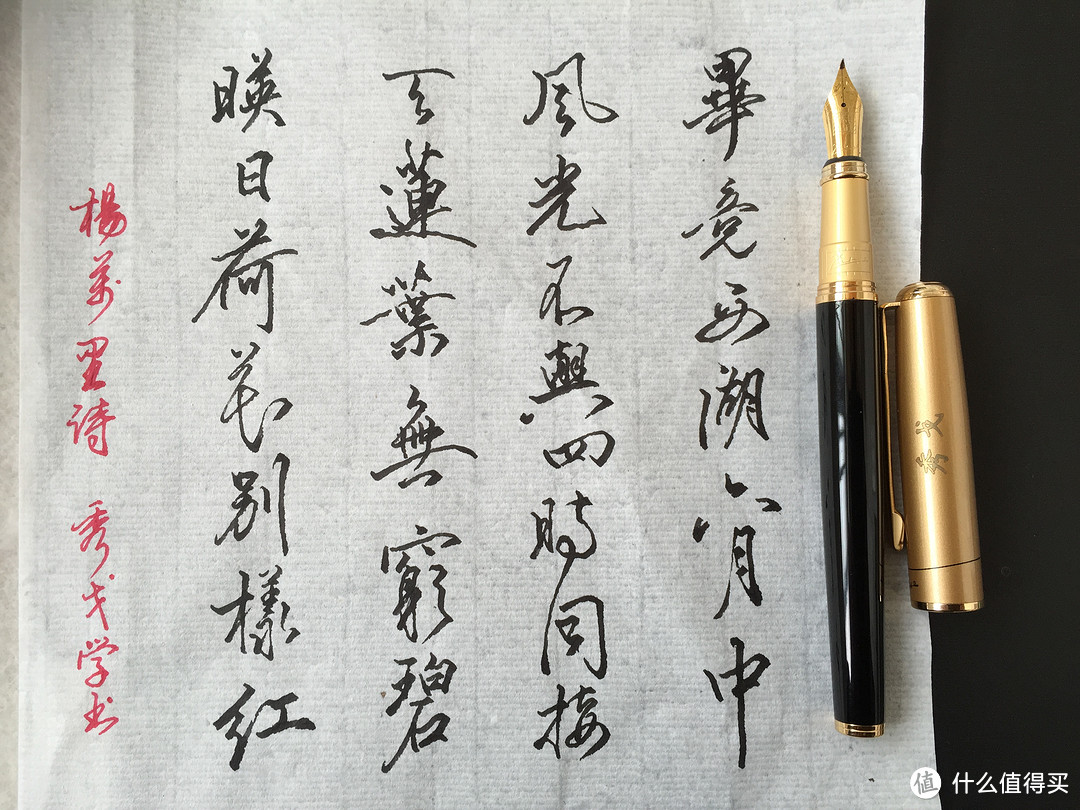 畢竟西湖六月中
風光不與四時同接
天蓮葉無窮碧
暎日荷花别樣红
楊萬里诗 秀戈学书
秀戈
值 什么值得买